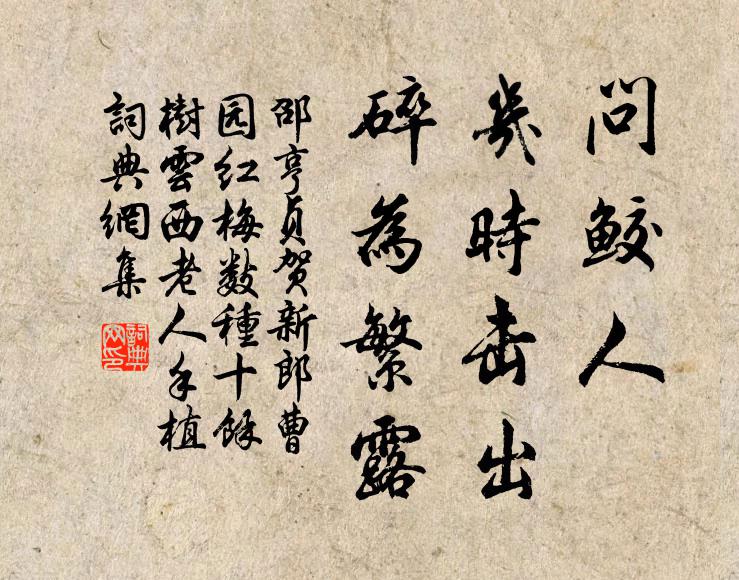 問鮫人
幾時击出
碎為繁露
邵亨貞贺新郎曹
园红梅数種十餘
樹雲西老人手植
詞典網集